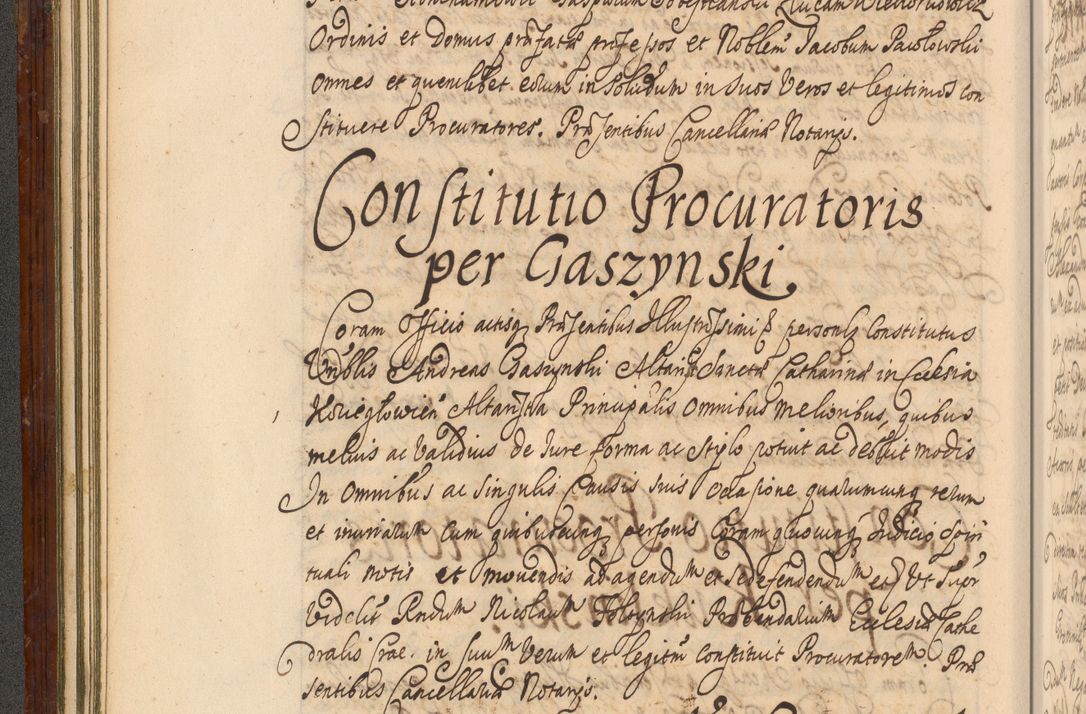 Ordinis et Domus præfatæ professos et Noblem Jacobum Pawlowski
Omnes et quemlibet eorum in Solidum in Suos Veros et legitimos con
stituere Procuratores. Præsentibus Cancellariæ Notarijs.
Constitutio Procuratoris
per Gaszynski
Coram Officio actisq Præsentibus Illustrissimi &c personlr Constitutus
Vnblis Andreas Gaszynski Altarista Sanctæ Catharinæ in Ecclesia
Altarista Principalis Omnibus melioribus, quibus
melius ac Validius de Jure forma ac Stylo potuit ac debuit modis
In Omnibus ac Singulis Causis suis Occasione quarumcunq rerum
et iniuriarum Cum quibuscunq personis Coram quocunq Judicio Spiri
tuali motis et movendis ad agendum et se defendendum etc Vt Supr
Videlict Rndum Nicolaum Præbendarium Ecclesiæ Cathe
dralis Crac. in Suum Verum et legitm constituit Procuratorem Præ
sentibus Cancellariæ Notarijs.